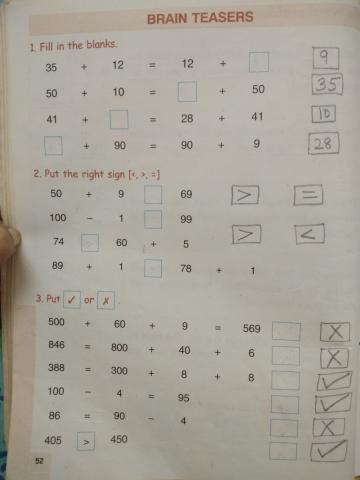 BRAIN TEASERS
1. Fill in the blanks.
35 + 12 = 12 + 9
50 + 10 = + 50 35
41 + = 28 + 41 10
+ 90 = 90 + 9 28
2. Put the right sign [<, >, =]
50 + 9 69 > =
100 − 1 99
74 > 60 + 5 > <
89 + 1 78 + 1
3. Put ✓ or ✗.
500 + 60 + 9 = 569 ✗
846 = 800 + 40 + 6 ✗
388 = 300 + 8 + 8 ✓
100 − 4 = 95 ✓
86 = 90 − 4 ✗
405 > 450 ✓
52